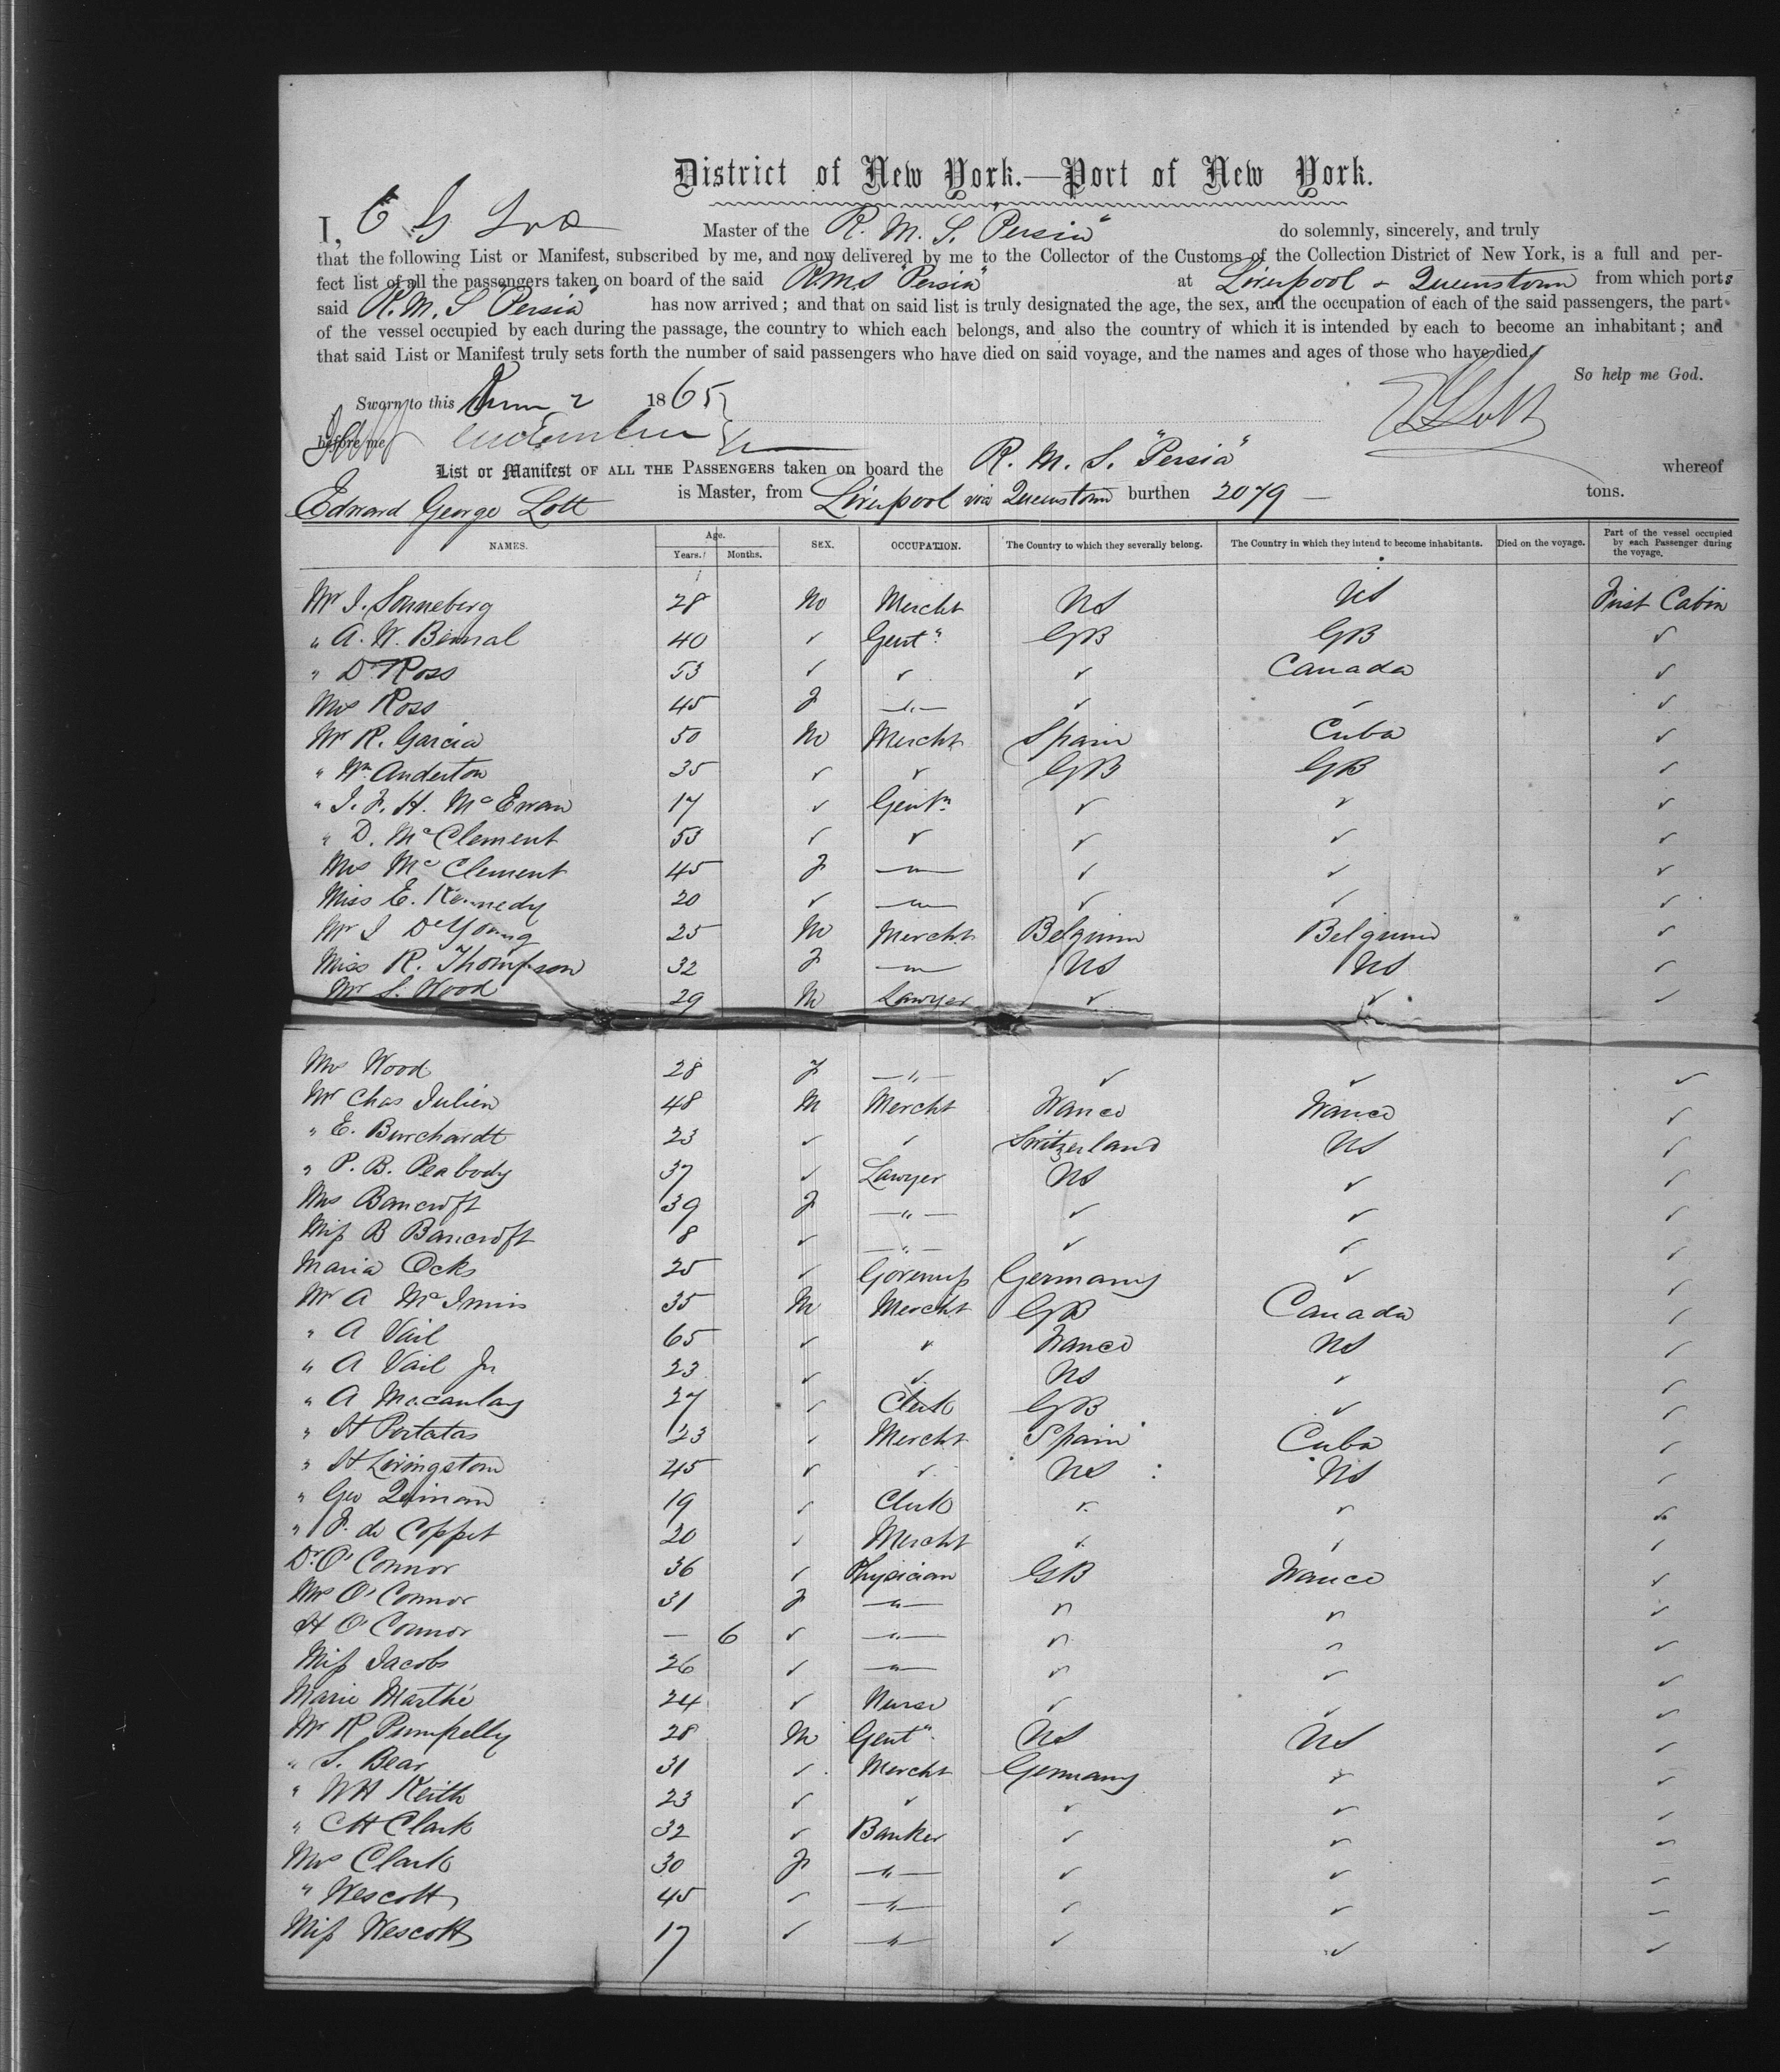 District of New York.—Port of New York.
I, E G Lott Master of the R. M. S. "Persia" do solemnly, sincerely, and truly
that the following List or Manifest, subscribed by me, and now delivered by me to the Collector of the Customs of the Collection District of New York, is a full and per-
fect list of all the passengers taken on board of the said R.M.S "Persia" at Liverpool & Queenstown from which ports
said R. M. S "Persia" has now arrived; and that on said list is truly designated the age, the sex, and the occupation of each of the said passengers, the part
of the vessel occupied by each during the passage, the country to which each belongs, and also the country of which it is intended by each to become an inhabitant; and
that said List or Manifest truly sets forth the number of said passengers who have died on said voyage, and the names and ages of those who have died.
So help me God.
Sworn to this 2 1865
before me
E G Lott
List or Manifest OF ALL THE PASSENGERS taken on board the R. M. S. "Persia" whereof
Edward George Lott is Master, from Liverpool via Queenstown burthen 2079 — tons.
NAMES. Age. Years. Months. SEX. OCCUPATION. The Country to which they severally belong. The Country in which they intend to become inhabitants. Died on the voyage. Part of the vessel occupied by each Passenger during the voyage.
Mr J. Sonneberg 28 M Mercht US US First Cabin
" A. W. Bernal 40 ✓ Gentn GB GB ✓
" D. Ross 53 ✓ ✓ ✓ Canada ✓
Mrs Ross 45 F —"— ✓ ✓ ✓
Mr R. Garcia 50 M Mercht Spain Cuba ✓
" Wm Anderton 35 ✓ ✓ GB GB ✓
" J. F. H. McEwan 17 ✓ Gentn ✓ ✓ ✓
" D. McClement 53 ✓ ✓ ✓ ✓ ✓
Mrs McClement 45 F —"— ✓ ✓ ✓
Miss E. Kennedy 20 ✓ —"— ✓ ✓ ✓
Mr J DeYoung 25 M Mercht Belgium Belgium ✓
Miss R. Thompson 32 F —"— US US ✓
Mr S. Wood 29 M Lawyer ✓ ✓ ✓
Mrs Wood 28 F —"— ✓ ✓ ✓
Mr Chas Julien 48 M Mercht France France ✓
" E. Burchardt 23 ✓ ✓ Switzerland US ✓
" P. B. Peabody 37 ✓ Lawyer US ✓ ✓
Mrs Bancroft 39 F —"— ✓ ✓ ✓
Miss B Bancroft 18 ✓ —"— ✓ ✓ ✓
Maria Ocks 25 ✓ Governess Germany ✓ ✓
Mr A McInnis 35 M Mercht GB Canada ✓
" A Vail 65 ✓ ✓ France US ✓
" A Vail Jr 23 ✓ ✓ US ✓ ✓
" A Macaulay 27 ✓ Clerk GB ✓ ✓
" H Portatas 23 ✓ Mercht Spain Cuba ✓
" H Livingston 45 ✓ ✓ US US ✓
" Geo 19 ✓ Clerk ✓ ✓ ✓
" F. de Coppet 20 ✓ Mercht ✓ ✓ ✓
Dr O'Connor 36 ✓ Physician GB France ✓
Mrs O'Connor 31 F —"— ✓ ✓ ✓
H O'Connor — 6 ✓ —"— ✓ ✓ ✓
Miss Jacobs 26 ✓ —"— ✓ ✓ ✓
Marie Marthé 24 ✓ Nurse ✓ ✓ ✓
Mr R Pumpelly 28 M Gentn US US ✓
" S. Bear 31 ✓ Mercht Germany ✓ ✓
" WH Keith 23 ✓ ✓ ✓ ✓ ✓
" CH Clark 32 ✓ Banker ✓ ✓ ✓
Mrs Clark 30 F —"— ✓ ✓ ✓
" Wescott 45 ✓ —"— ✓ ✓ ✓
Miss Wescott 17 ✓ —"— ✓ ✓ ✓